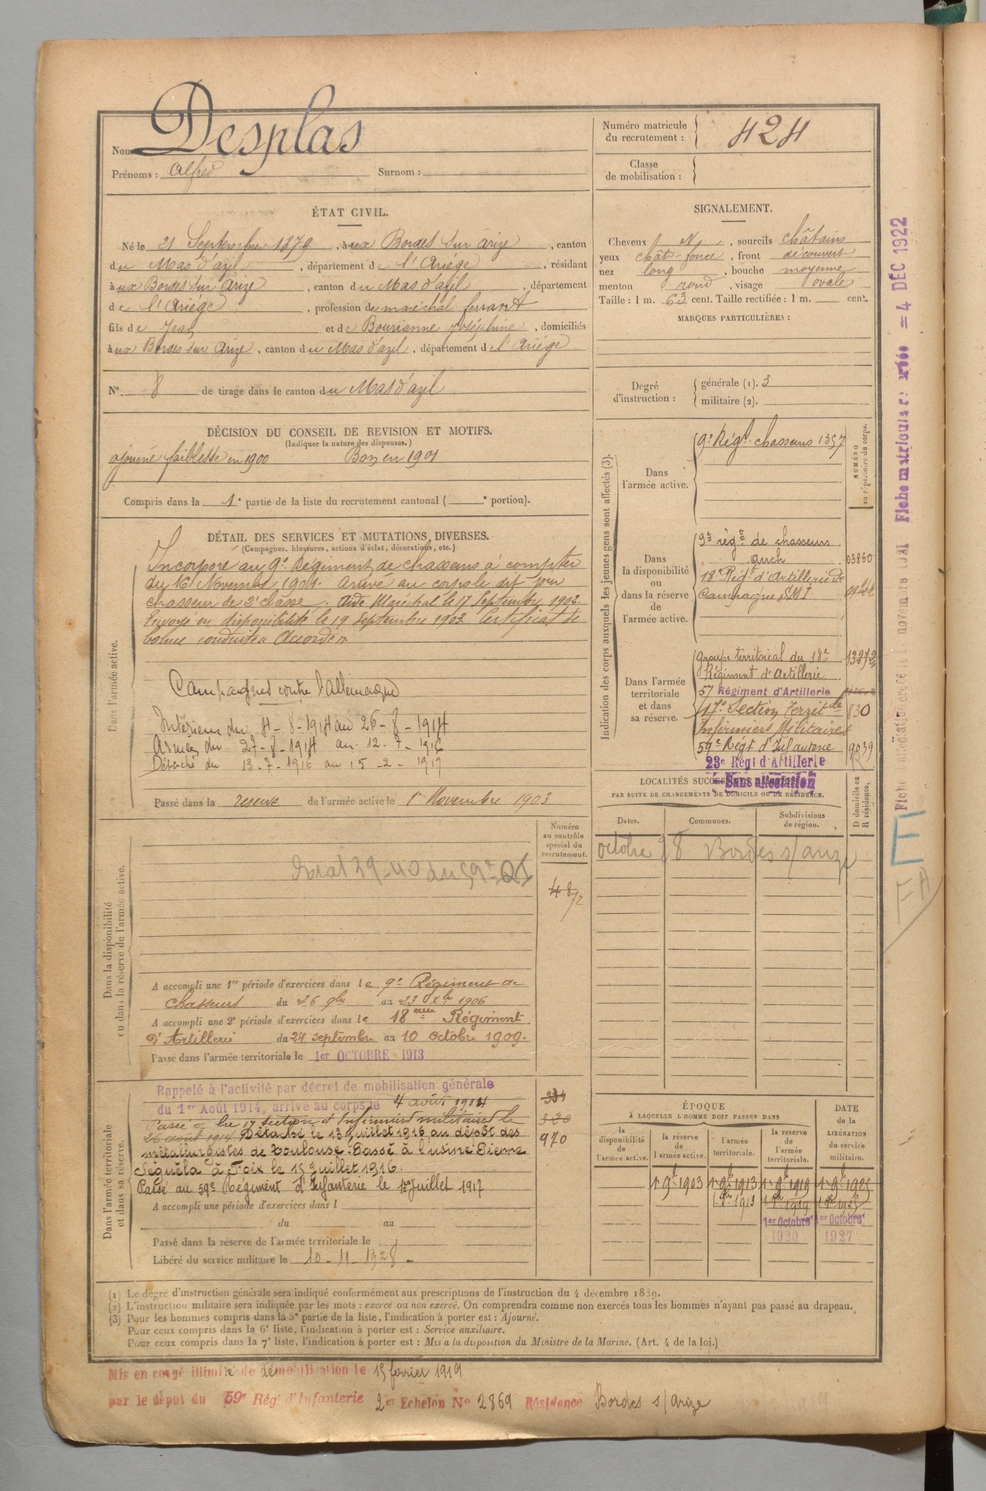 Nom Desplas
Prénoms : Alfred Surnom :
Numéro matricule du recrutement : 424
Classe de mobilisation :
ÉTAT CIVIL.
Né le 21 Septembre 1879, à aux Bordes sur Arize, canton
du Mas d'azil, département de l'Ariége, résidant
à aux Bordes sur Arize, canton du Mas d'azil, département
de l'Ariége, profession de maréchal ferrant
fils de Jean et de Bourianne Joséphine, domiciliés
à aux Bordes sur Arize, canton du Mas d'azil, département de l'Ariége
N° 8 de tirage dans le canton du Mas d'azil
SIGNALEMENT.
Cheveux , sourcils châtains
yeux chât-foncé, front découvert
nez long, bouche moyenne
menton rond, visage ovale
Taille : 1 m. 63 cent. Taille rectifiée : 1 m. cent.
MARQUES PARTICULIÈRES :
Degré d'instruction : générale (1). 3
militaire (2).
DÉCISION DU CONSEIL DE REVISION ET MOTIFS.
(Indiquer la nature des dispenses.)
ajourné faiblesse en 1900 Bon en 1901
Compris dans la 1e partie de la liste du recrutement cantonal ( e portion).
DÉTAIL DES SERVICES ET MUTATIONS DIVERSES.
(Campagnes, blessures, actions d'éclat, décorations, etc.)
Dans l'armée active.
Incorporé au 9e Régiment de chasseurs à compter
du 16 Novembre 1901. Arrivé au corps le dit jour
chasseur de 2e classe. Aide Maréchal le 17 Septembre 1902.
Envoyé en disponibilité le 19 Septembre 1903 Certificat de
bonne conduite Accordé
Campagnes contre l'allemagne
Intérieur du 4-8-1914 au 26-8-1914
Armées du 27-8-1914 au 12-7-1916
Détaché du 13-7-1916 au 15-2-1919
Passé dans la réserve de l'armée active le 1er Novembre 1903
Indication des corps auxquels les jeunes gens sont affectés (3).
NUMÉRO
Dans l'armée active.
9e Régt chasseurs 1357
Dans la disponibilité ou dans la réserve de l'armée active.
9e régt de chasseurs
auch 03860
18e Régt d'Artillerie de
Campagne SMI
Dans l'armée territoriale et dans sa réserve.
Groupe territorial du 18e
Régiment d'Artillerie
57 Régiment d'Artillerie
17e Section Territle 830
Infirmiers Militaires
59e Régt d'Infanterie 9039
23e Régt d'Artillerie
Sans affectation
LOCALITÉS SUCCESSIVES
PAR SUITE DE CHANGEMENTS DE DOMICILE OU DE RÉSIDENCE.
Dates. Communes. Subdivisions de région. D domicile ou R résidence.
octobre 28 Bordes s/arize
Dans la disponibilité ou dans la réserve de l'armée active.
Numéro au contrôle spécial du recrutement.
A accompli une 1re période d'exercices dans le 9e Régiment de
Chasseurs du 26 9bre au 23 Xbre 1906
A accompli une 2e période d'exercices dans le 18eme Régiment
d'Artillerie du 24 septembre au 10 octobre 1909.
Passé dans l'armée territoriale le 1er OCTOBRE 1913
Dans l'armée territoriale et dans sa réserve.
Rappelé à l'activité par décret de mobilisation générale
du 1er Août 1914, arrivé au corps le 4 août 1914
Passé à la 17 section d'Infirmiers militaires le
26 août 1914 Détaché le 13 juillet 1916 au dépôt des
métallurgistes de Toulouse. Passé à l'usine Pierre
Séguéla à Foix le 15 juillet 1916.
Passé au 59e Régiment d'Infanterie le 1er Juillet 1917
970
A accompli une période d'exercices dans l
du au
Passé dans la réserve de l'armée territoriale le
Libéré du service militaire le 10-11-1928
ÉPOQUE
À LAQUELLE L'HOMME DOIT PASSER DANS
la disponibilité de l'armée active. la réserve de l'armée active. l'armée territoriale. la réserve de l'armée territoriale. DATE de la LIBÉRATION du service militaire.
1er Octobre 1er Octobre
1920 1927
(1) Le degré d'instruction générale sera indiqué conformément aux prescriptions de l'instruction du 4 décembre 1889.
(2) L'instruction militaire sera indiquée par les mots : exercé ou non exercé. On comprendra comme non exercés tous les hommes n'ayant pas passé au drapeau.
(3) Pour les hommes compris dans la 5e partie de la liste, l'indication à porter est : Ajourné.
Pour ceux compris dans la 6e liste, l'indication à porter est : Service auxiliaire.
Pour ceux compris dans la 7e liste, l'indication à porter est : Mis à la disposition du Ministre de la Marine. (Art. 4 de la loi.)
Mis en congé illimité de démobilisation le 15 février 1919
par le dépôt du 59e Rég' d'Infanterie 2e Echelon N° 2869 Résidence Bordes s/Arize
Fiche matriculaire = 4 DEC 1922